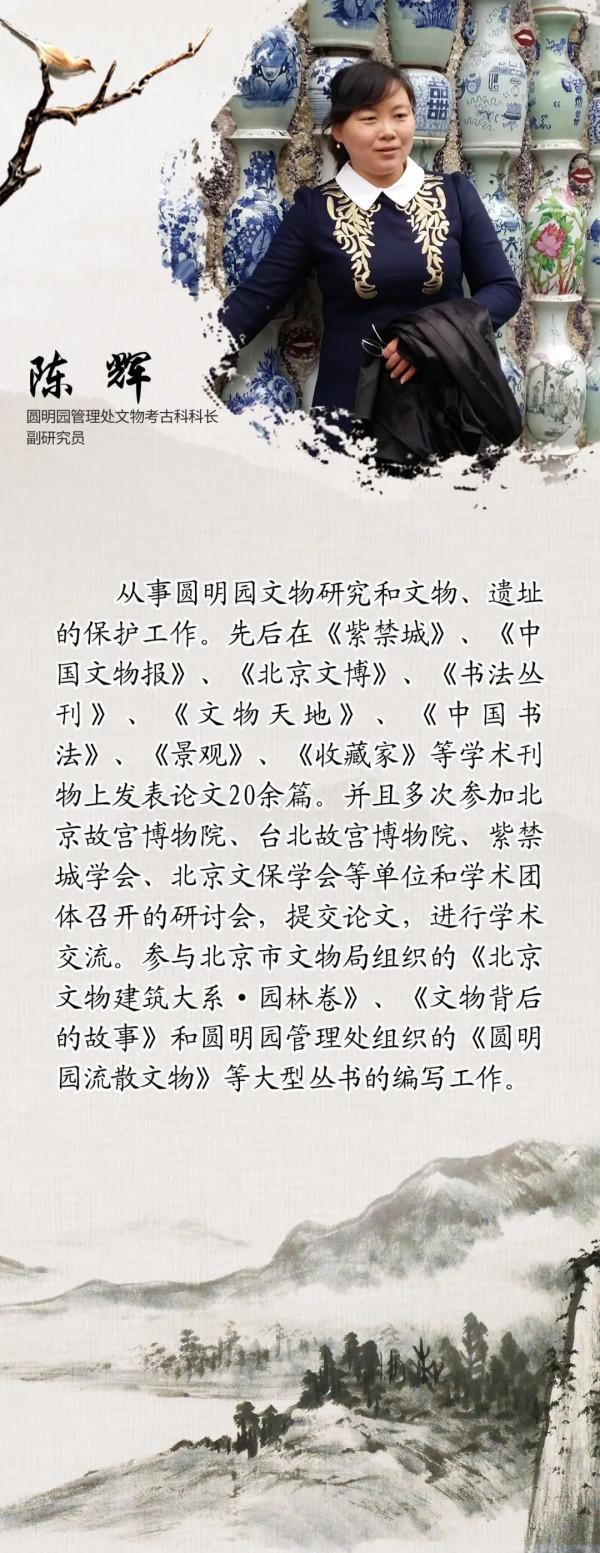 陈 辉
圆明园管理处文物考古科科长
副研究员
从事圆明园文物研究和文物、遗址
的保护工作。先后在《紫禁城》、《中
国文物报》、《北京文博》、《书法丛
刊》、《文物天地》、《中国书
法》、《景观》、《收藏家》等学术刊
物上发表论文20余篇。并且多次参加北
京故宫博物院、台北故宫博物院、紫禁
城学会、北京文保学会等单位和学术团
体召开的研讨会，提交论文，进行学术
交流。参与北京市文物局组织的《北京
文物建筑大系·园林卷》、《文物背后
的故事》和圆明园管理处组织的《圆明
园流散文物》等大型丛书的编写工作。